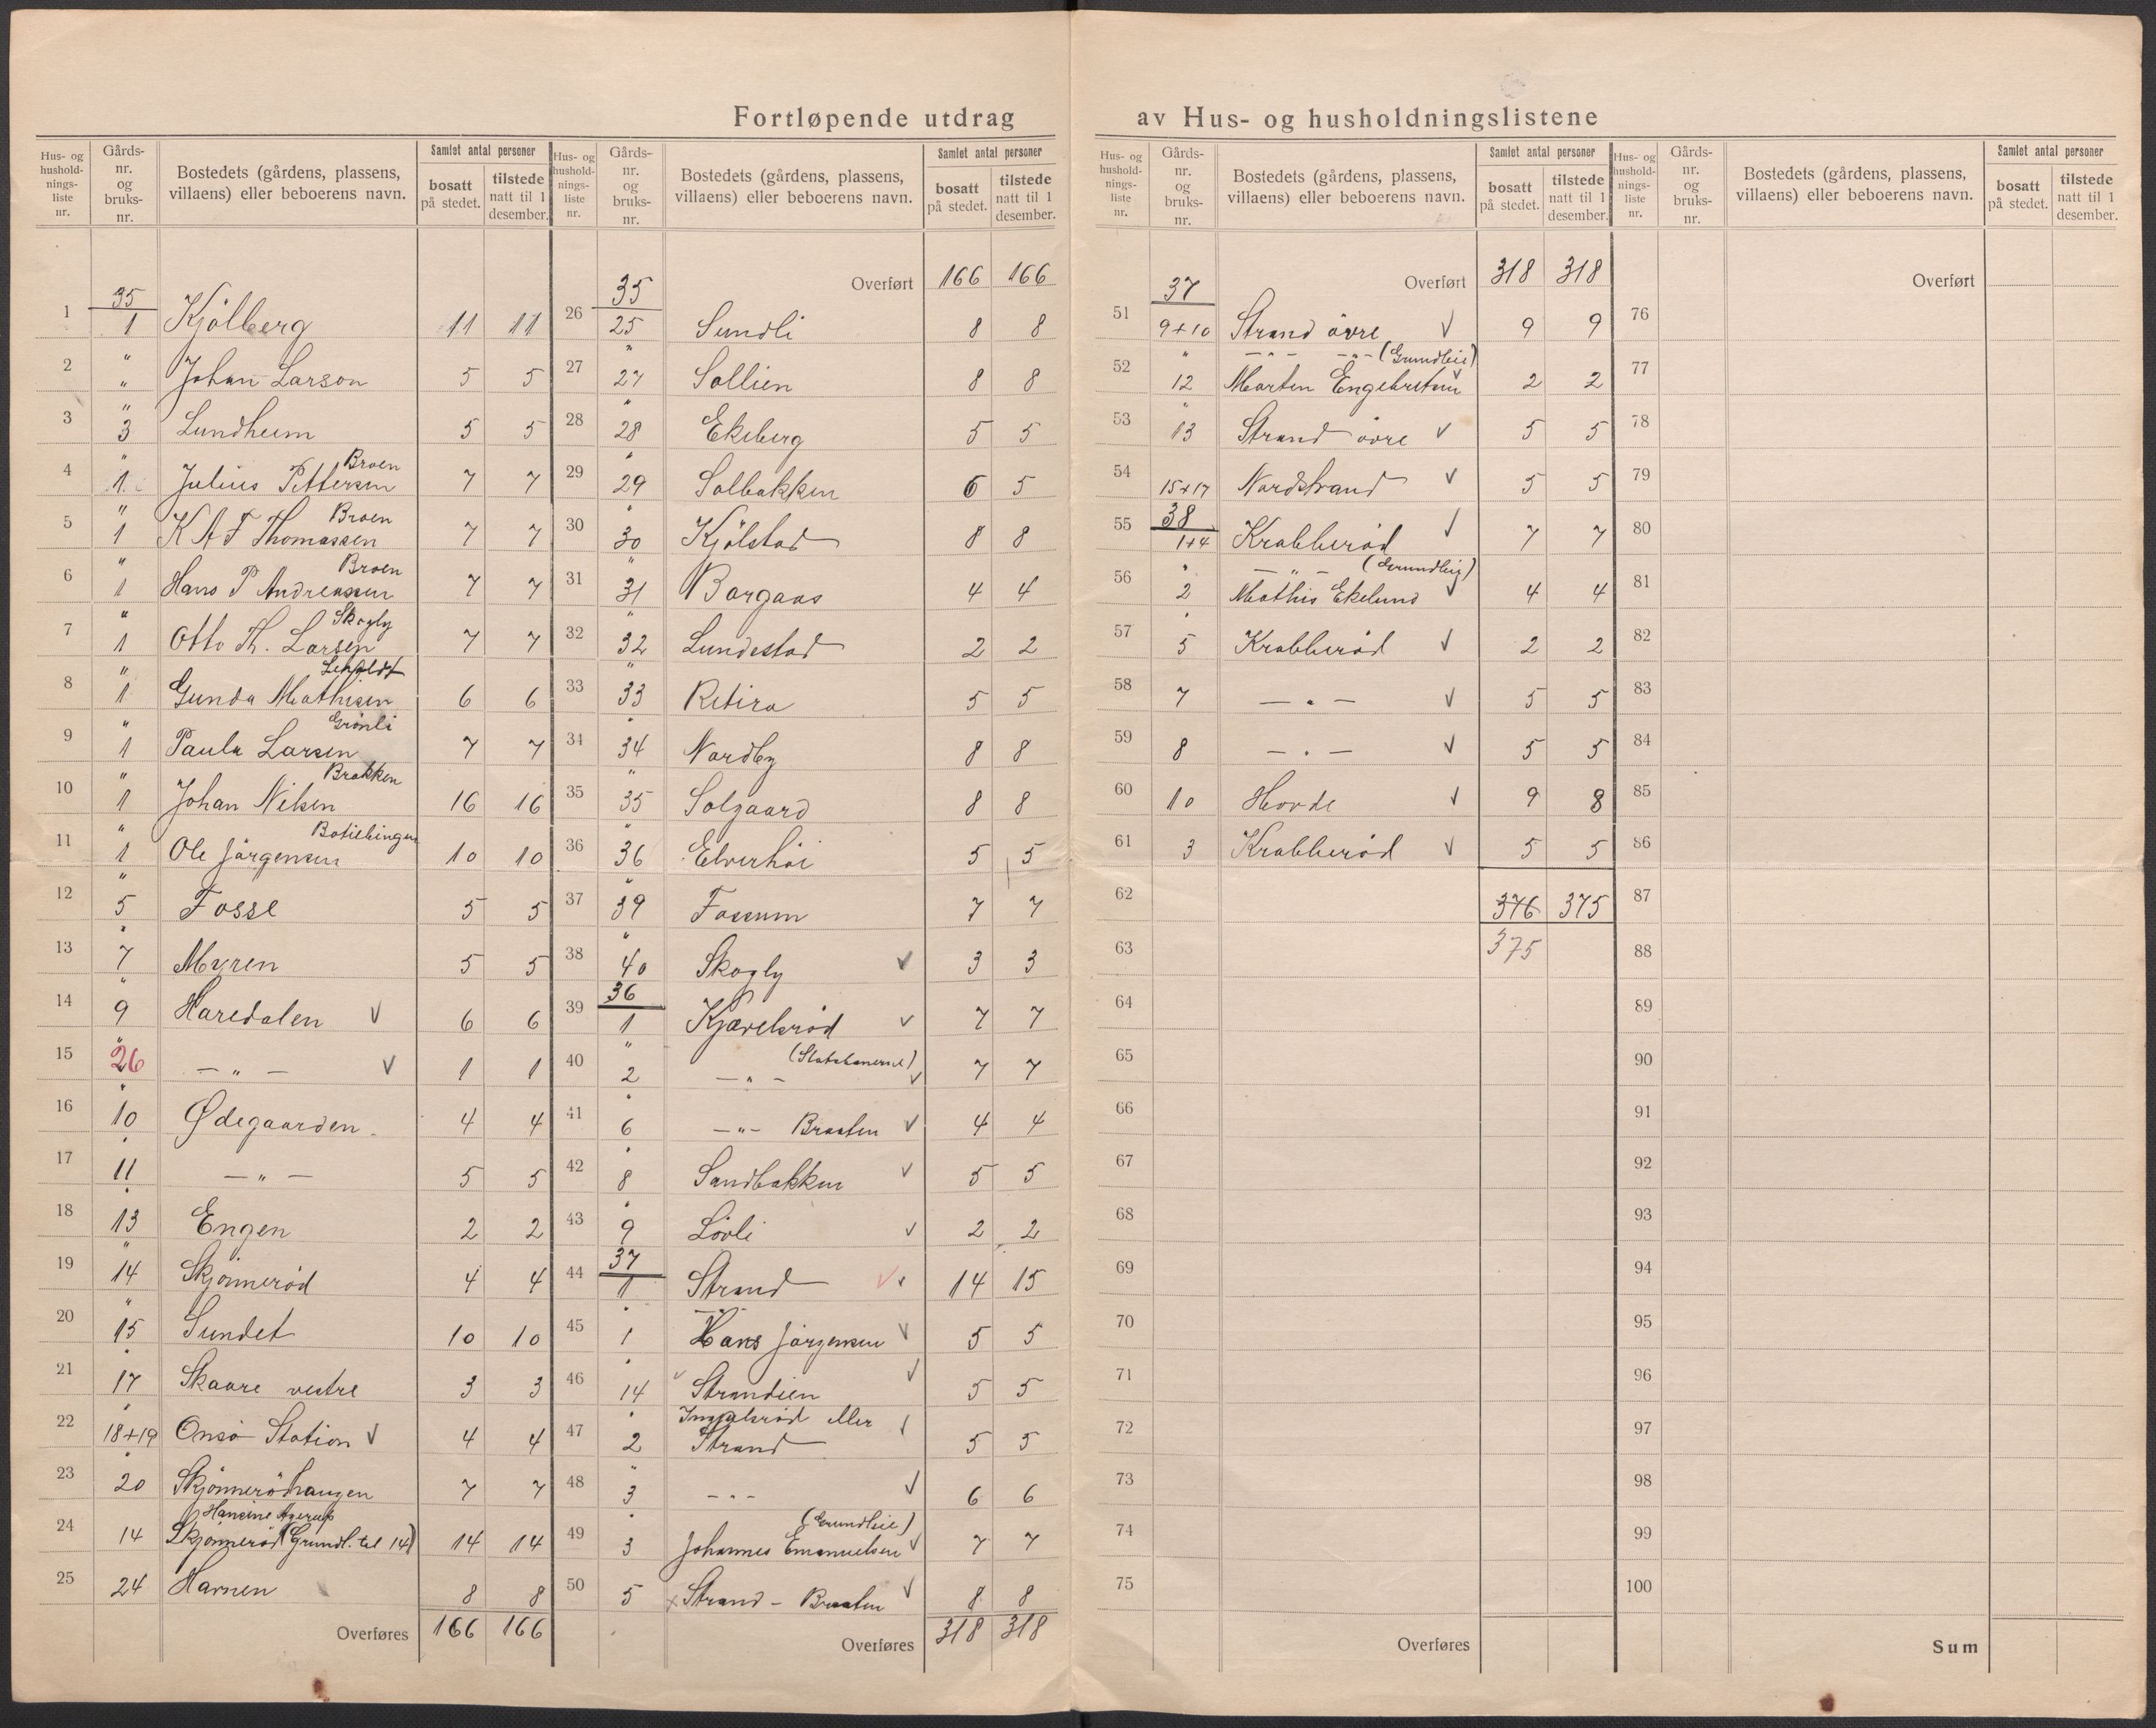 Fortløpende utdrag av Hus- og husholdningslistene
Hus- og husholdningsliste nr. Gårds-nr. og bruks-nr. Bostedets (gårdens, plassens, villaens) eller beboerens navn. Samlet antal personer bosatt på stedet. tilstede natt til 1 desember.
35
1 1 Kjølberg 11 11
2 " " Johan Larson 5 5
3 " 3 Lundheim 5 5
Broen
4 " 1 Julius Pettersen 7 7
Broen
5 " 1 K A F Thomassen 7 7
Broen
6 " 1 Hans P Andreassen 7 7
Skogly
7 " 1 Otto Th. Larsen 7 7
8 " 1 Gunda Mathisen 6 6
Grønli
9 " 1 Paula Larsen 7 7
Brakken
10 " 1 Johan Nilsen 16 16
11 " 1 Ole Jørgensen 10 10
12 " 5 Fosse 5 5
13 " 7 Myren 5 5
14 " 9 Haredalen √ 6 6
15 " 26 — " — √ 1 1
16 " 10 Ødegaarden 4 4
17 " 11 — " — 5 5
18 " 13 Engen 2 2
19 " 14 Skjønnerød 4 4
20 " 15 Sundet 10 10
21 " 17 Skaare vestre 3 3
22 " 18+19 Onsø Station √ 4 4
23 " 20 Skjønnerødhaugen 7 7
Hansine Agerup
24 14 Skjønnerød (Grundl. til 14) 14 14
25 24 Harnen 8 8
Overføres 166 166
Hus- og husholdningsliste nr. Gårds-nr. og bruks-nr. Bostedets (gårdens, plassens, villaens) eller beboerens navn. Samlet antal personer bosatt på stedet. tilstede natt til 1 desember.
Overført 166 166
35
26 25 Sundli 8 8
27 " 27 Sollien 8 8
28 " 28 Ekeberg 5 5
29 " 29 Solbakken 6 5
30 " 30 Kjølstad 8 8
31 " 31 Borgaas 4 4
32 " 32 Lundestad 2 2
33 " 33 Retiro 5 5
34 " 34 Nordby 8 8
35 " 35 Solgaard 8 8
36 " 36 Elverhøi 5 5
37 " 39 Fossum 7 7
38 " 40 Skogly √ 3 3
36
39 1 Kjærelsrød √ 7 7
(Statsbanerne)
40 " 2 — " — √ 7 7
41 " 6 — " — Braaten √ 4 4
42 " 8 Sandbakken √ 5 5
43 " 9 Løvli √ 2 2
37
44 1 Strand √ √ 14 15
45 " 1 Hans Jørgensen √ 5 5
46 " 14 √ Strandien √ 5 5
eller √
47 " 2 Strand 5 5
48 " 3 — " — √ 6 6
(Grundleie)
49 " 3 Johannes Emanuelsen √ 7 7
50 5 x Strand - Braaten √ 8 8
Overføres 318 318
Hus- og husholdningsliste nr. Gårds-nr. og bruks-nr. Bostedets (gårdens, plassens, villaens) eller beboerens navn. Samlet antal personer bosatt på stedet. tilstede natt til 1 desember.
Overført 318 318
37
51 9+10 Strand øvre √ 9 9
— " — — " — (Grundleie)
52 " 12 Marten Engebretsen √ 2 2
53 " 13 Strand øvre √ 5 5
54 15+17 Nordstrand √ 5 5
38
55 1+4 Krabberød √ 7 7
— " — (Grundleie)
56 " 2 Mathis Ekelund √ 4 4
57 " 5 Krabberød √ 2 2
58 7 — " — √ 5 5
59 8 — " — √ 5 5
60 10 Hovde √ 9 8
61 3 Krabberød √ 5 5
62 376 375
63 375
64
65
66
67
68
69
70
71
72
73
74
75
Overføres
Hus- og husholdningsliste nr. Gårds-nr. og bruks-nr. Bostedets (gårdens, plassens, villaens) eller beboerens navn. Samlet antal personer bosatt på stedet. tilstede natt til 1 desember.
Overført
76
77
78
79
80
81
82
83
84
85
86
87
88
89
90
91
92
93
94
95
96
97
98
99
100
Sum